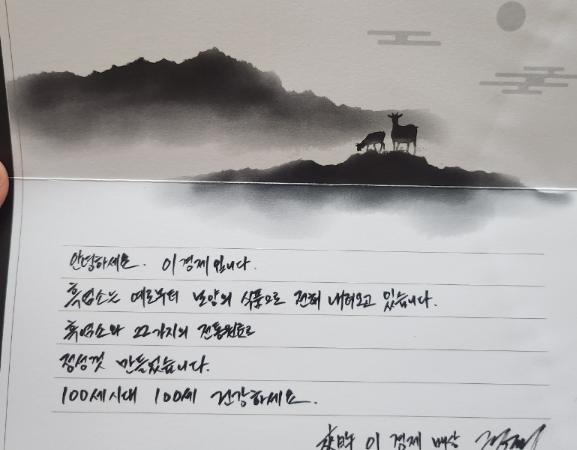 안녕하세요. 이경제입니다.
흑염소는 예로부터 보양의 식품으로 전해 내려오고 있습니다.
흑염소와 22가지의 전통원료로
정성껏 만들었습니다.
100세시대 100세 건강하세요.
이경제 배상